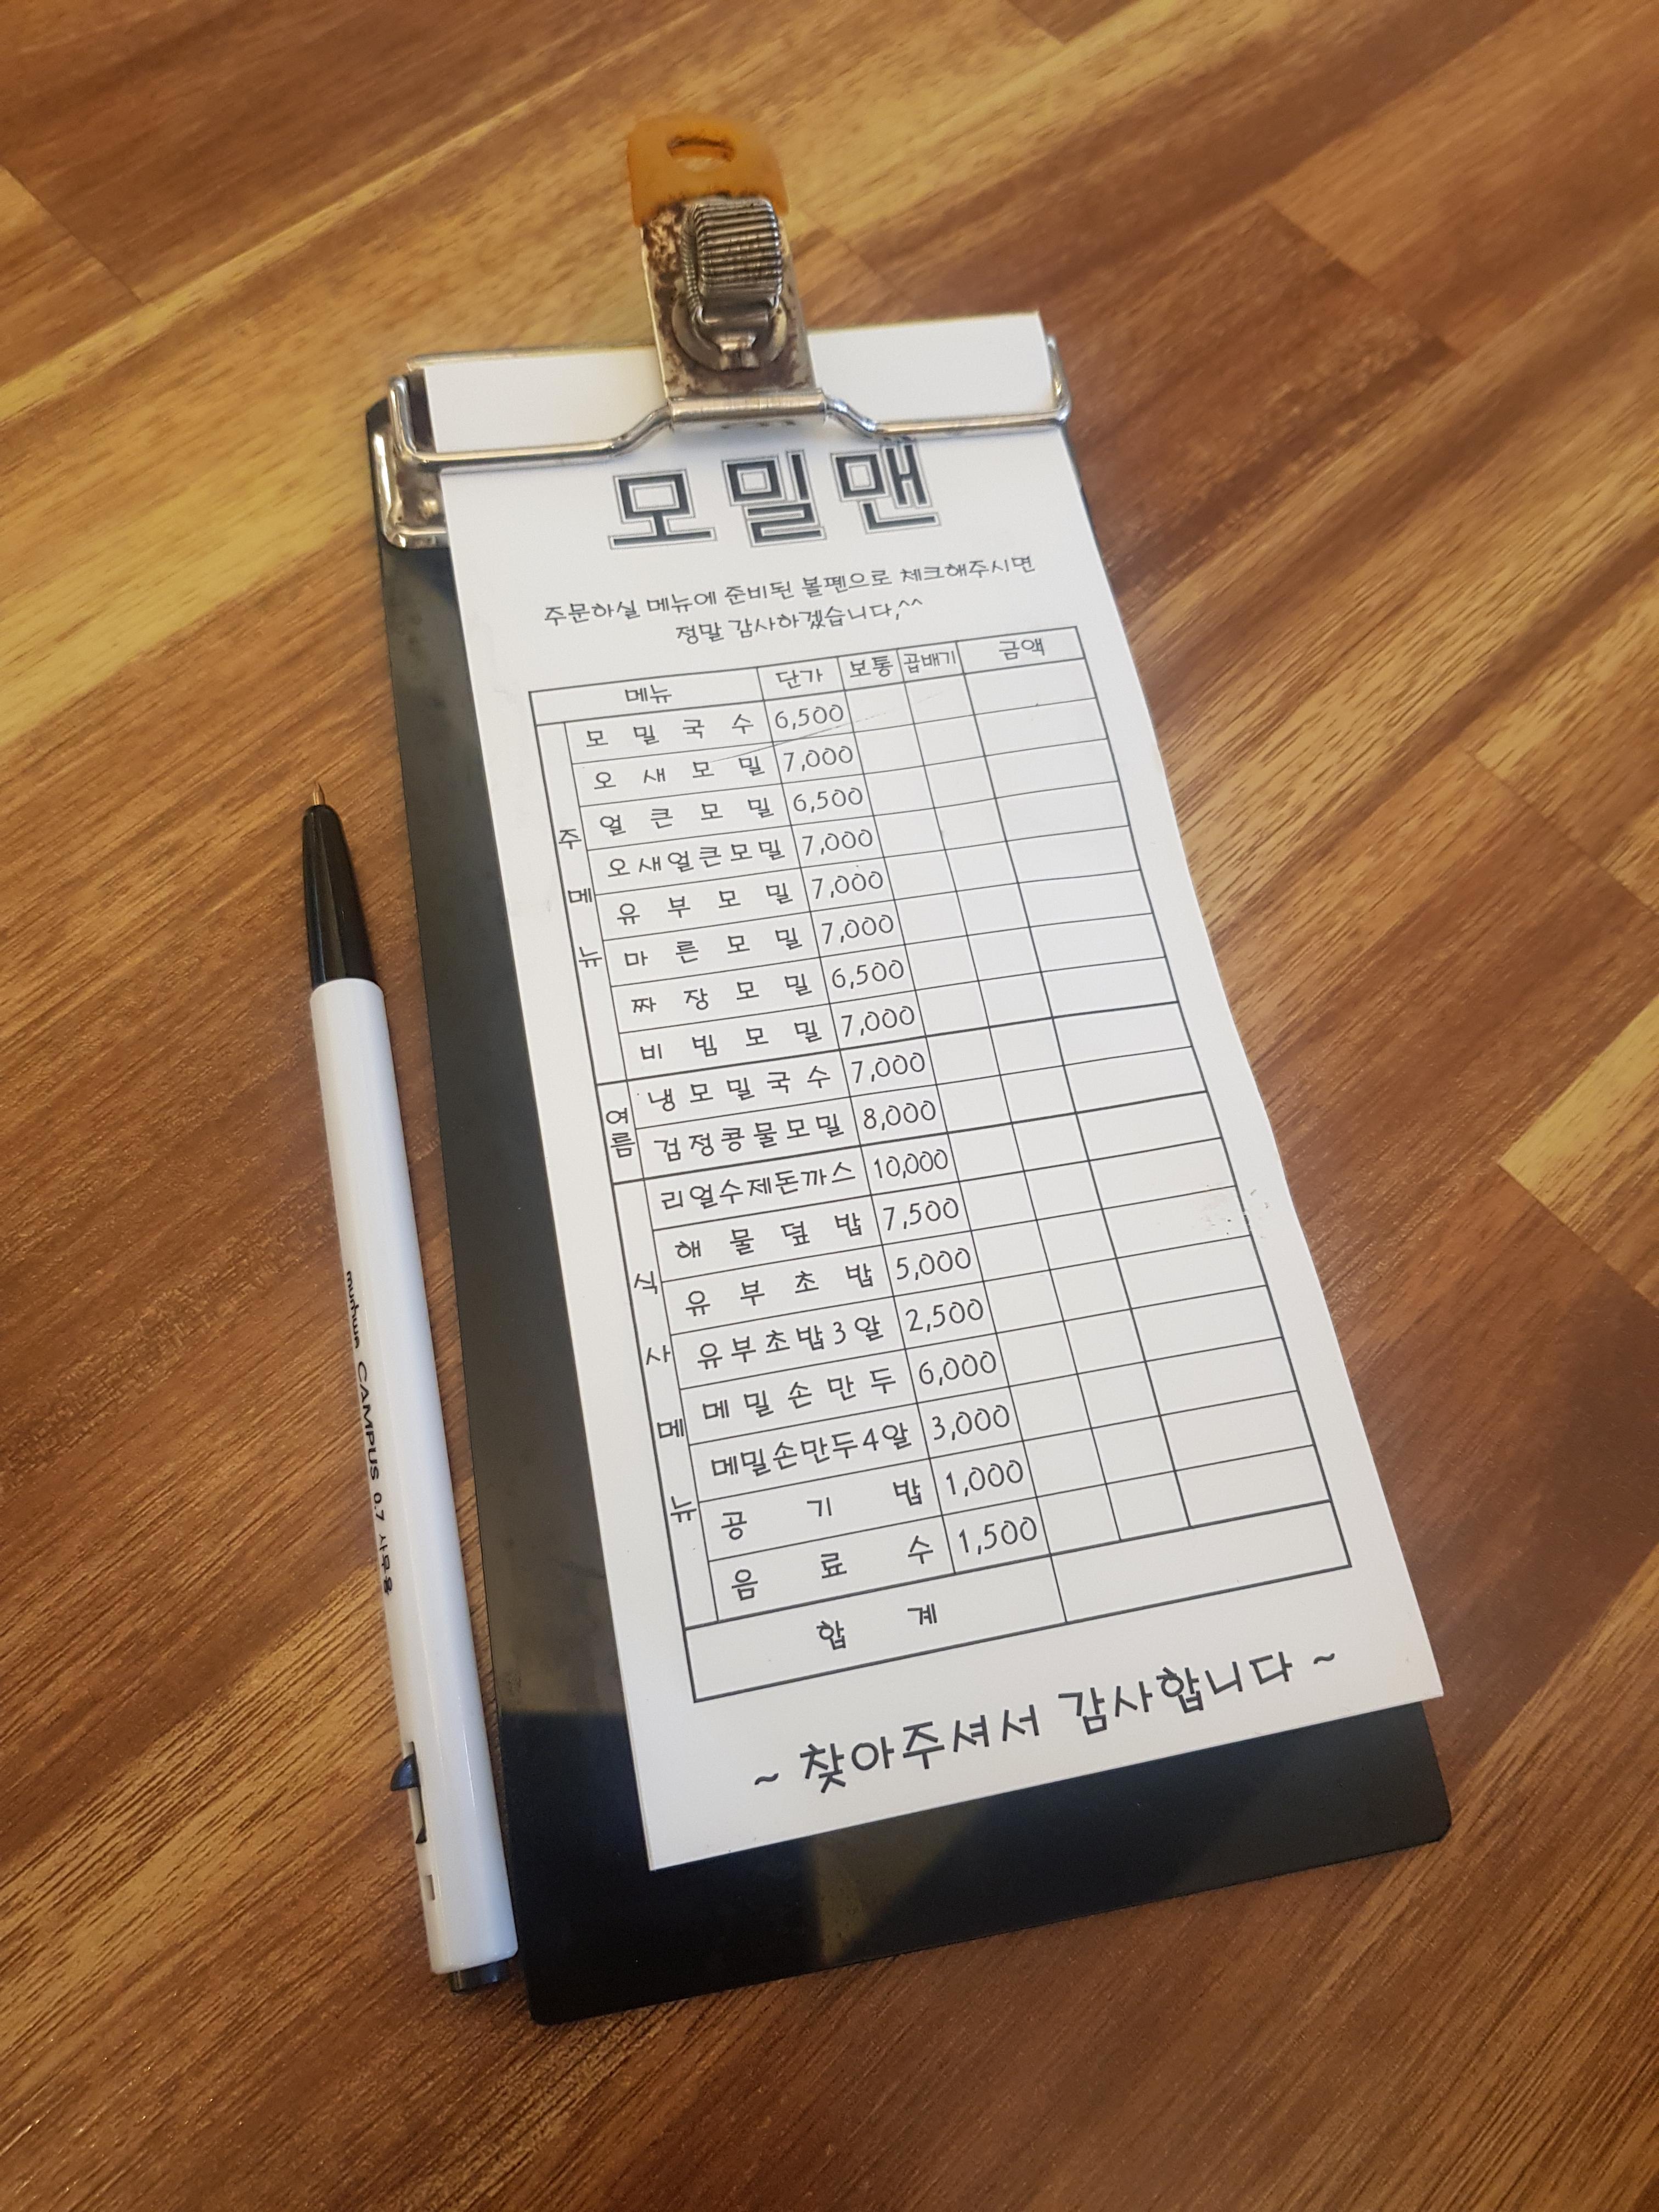 모밀맨
주문하실 메뉴에 준비된 볼펜으로 체크해주시면
정말 감사하겠습니다,^^
메뉴 단가 보통 곱배기 금액
주메뉴
모밀국수 6,500
오새모밀 7,000
얼큰모밀 6,500
오새얼큰모밀 7,000
유부모밀 7,000
마른모밀 7,000
짜장모밀 6,500
비빔모밀 7,000
여름
냉모밀국수 7,000
검정콩물모밀 8,000
식사메뉴
리얼수제돈까스 10,000
해물덮밥 7,500
유부초밥 5,000
유부초밥3알 2,500
메밀손만두 6,000
메밀손만두4알 3,000
공기밥 1,000
음료수 1,500
합계
~ 찾아주셔서 감사합니다 ~
munhwa CAMPUS 0.7 사무용